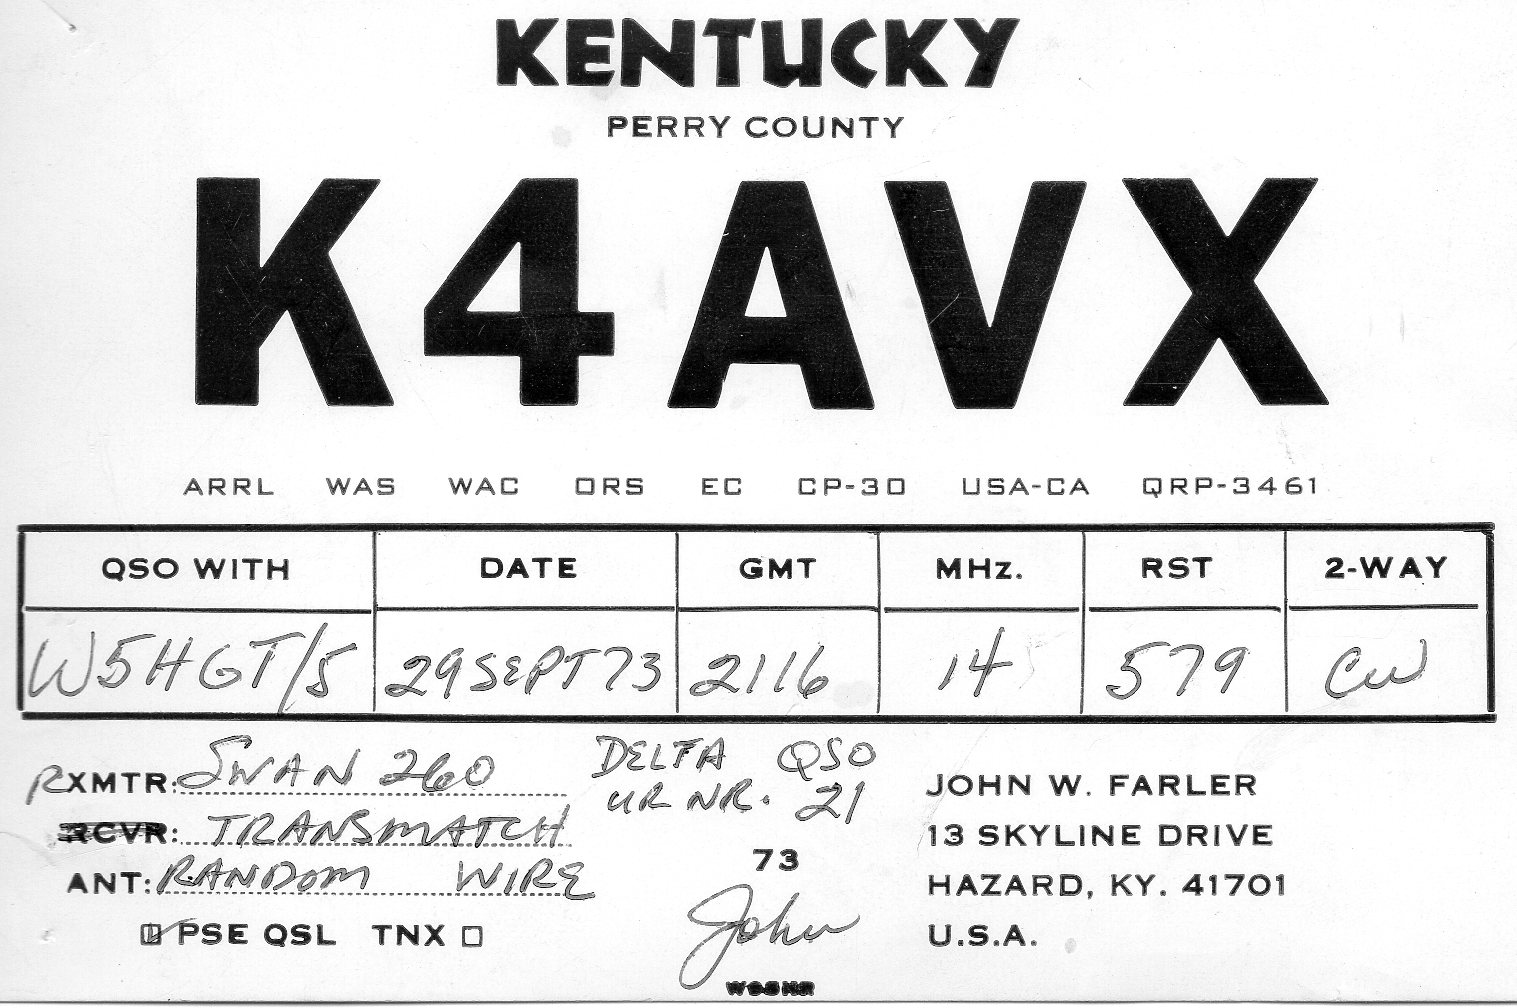 KENTUCKY
PERRY COUNTY
K4AVX
ARRL WAS WAC ORS EC CP-30 USA-CA QRP-3461
QSO WITH DATE GMT MHz. RST 2-WAY
W5HGT/5 29 SEPT 73 2116 14 579 CW
RXMTR: SWAN 260
RCVR: TRANSMATCH
ANT: RANDOM WIRE
PSE QSL TNX
DELTA QSO
UR NR. 21
73
John
JOHN W. FARLER
13 SKYLINE DRIVE
HAZARD, KY. 41701
U.S.A.